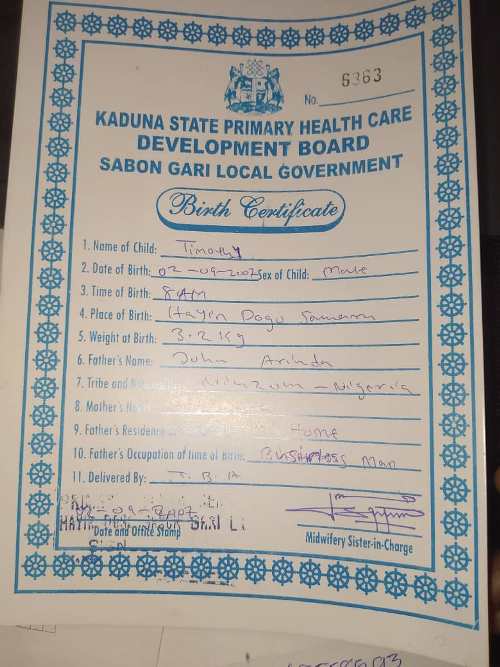 No. 6363
KADUNA STATE PRIMARY HEALTH CARE
DEVELOPMENT BOARD
SABON GARI LOCAL GOVERNMENT
Birth Certificate
1. Name of Child: Timothy
2. Date of Birth: 02-09-2007 Sex of Child: Male
3. Time of Birth: 8AM
4. Place of Birth: Hayin Dogo Samaru
5. Weight at Birth: 3.2kg
6. Father's Name: John
7. Tribe and - Nigeria
8. Mother's
9. Father's Residence Home
10. Father's Occupation of time of Birth: Business Man
11. Delivered By: T.B.A
02-09-2007
Date and Office Stamp
Midwifery Sister-in-Charge